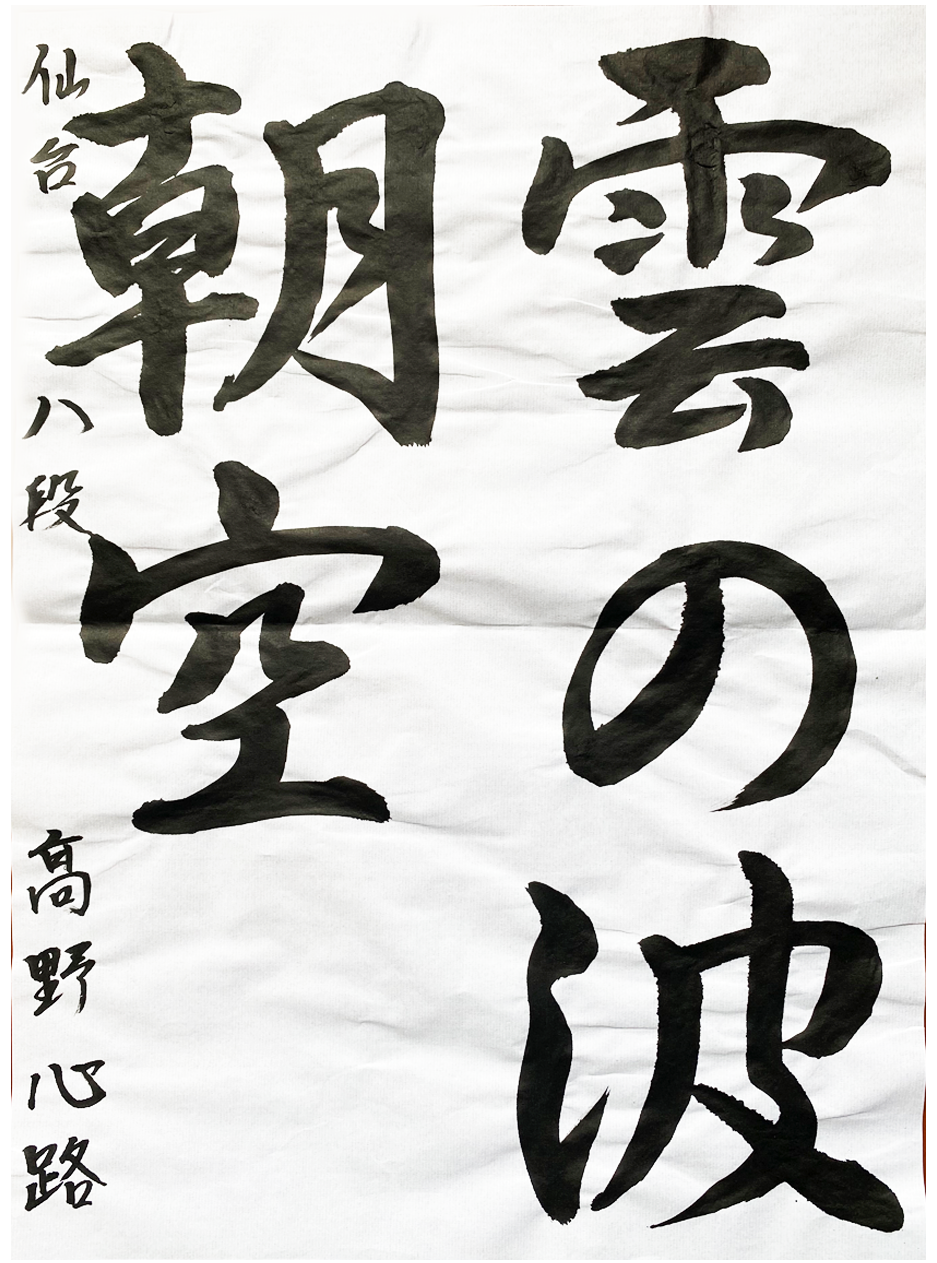 雲の波
朝空
仙台 八段 高野心路